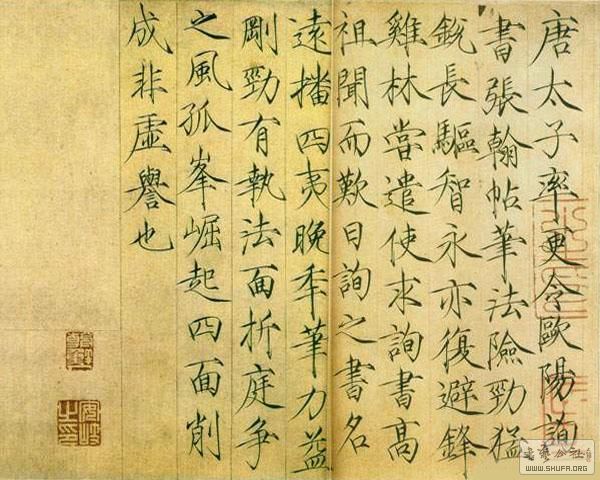 唐太子率更令歐陽詢
書張翰帖筆法險勁猛
銳長驅智永亦復避鋒
雞林嘗遣使求詢書高
祖聞而歎曰詢之書名
遠播四夷晚年筆力益
剛勁有執法面折庭爭
之風孤峯崛起四面削
成非虛譽也
WWW.SHUFA.ORG